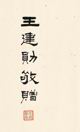 王建勛敬贈